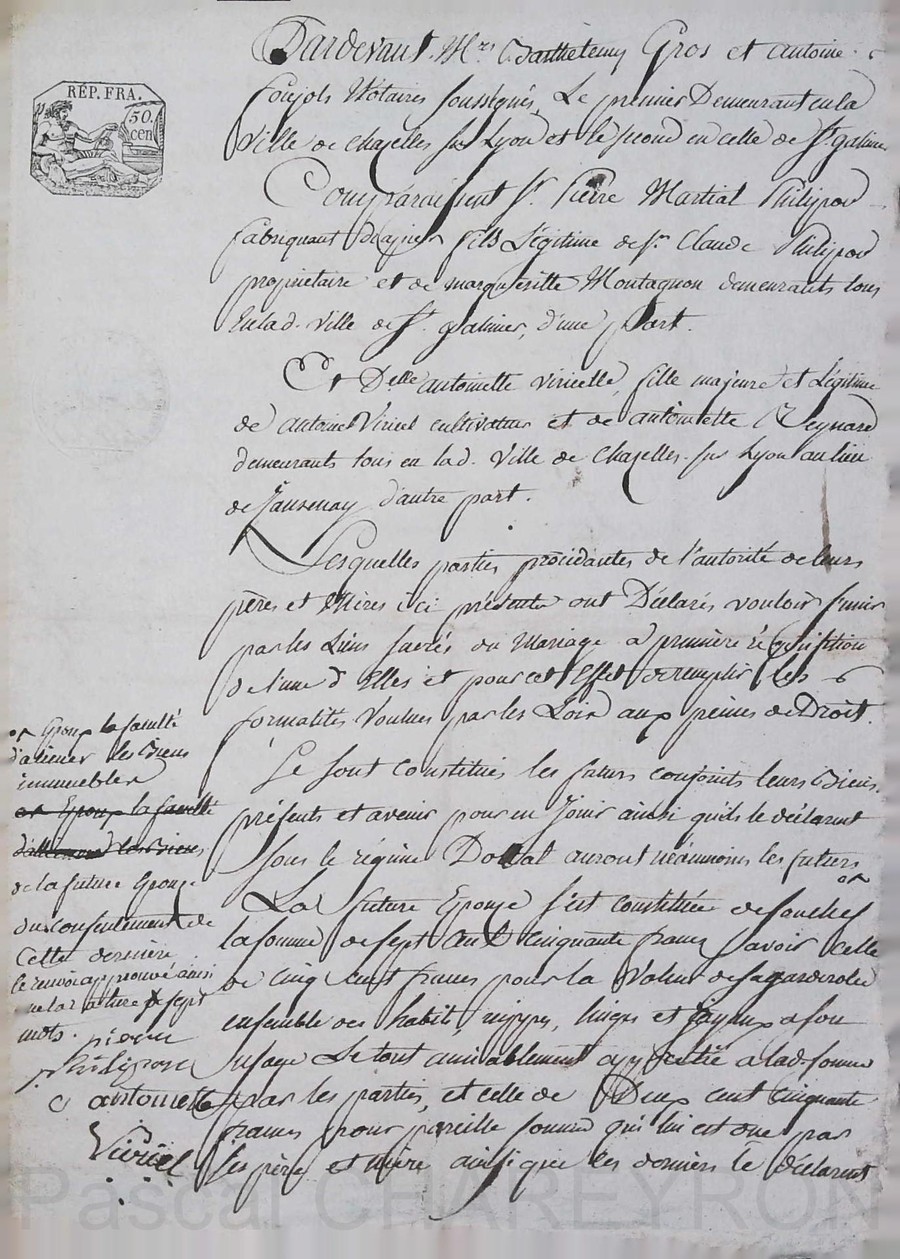 RÉP. FRA.
50.
cen
Pardevant Mrs Barthelemy Gros et antoine
Poujols Nótaires soussignés, Le premier Demeurant en la
Ville de chazelles sur Lyon et le second en celle de St. galmier
Comparaissent Sr. Pierre Martial Philipon
fabriquant fils Légitime de Sr. Claude Philipon
propriétaire et de margueritte Montagnon demeurants tous
en lad. ville de St. galmier, d'une part.
Et Delle antoinette viricelle, fille majeure et Légitime
de antoine Viricel cultivateur et de antoinette Reynard
demeurants tous en lad. ville de chazelles sur Lyon au lieu
de d'autre part.
Lesquelles parties procédantes de l'autorité de leurs
pères et Mères ici présents ont Déclarés vouloir s'unir
par les Liens sacrés du Mariage à première réquisition
de l'une d'Elles et pour cet Effet de remplir les
formalités Voulues par les Loix aux peines de Droit.
Se sont constitués les futurs conjoints leurs Biens
présents et avenir pour en Jouir ainsi qu'ils le déclarent
sous le régime Dottal auront néanmoins les futurs
La future Epouse s'est constituée de son chef
la somme de sept cent cinquante francs savoir celle
de cinq cent francs pour la valeur de sa garderobe
ensemble des habits, nippes, linges et joyaux à son
usage Le tout amiablement appreciée a lad. somme
par les parties, et celle de Deux cent cinquante
francs pour pareille somme qui lui est due par
ses père et mère ainsi que les derniers le déclarent
Epoux la faculté
d'aliener les Biens
immeubles
Epoux la faculté
d'aliener les Biens
de la future Epouse
du consentement de
cette dernière
le renvoi approuvé ainsi
que la rature de sept
mots.
pierre
philipon
antoinette
Viricel
Pascal CHAREYRON